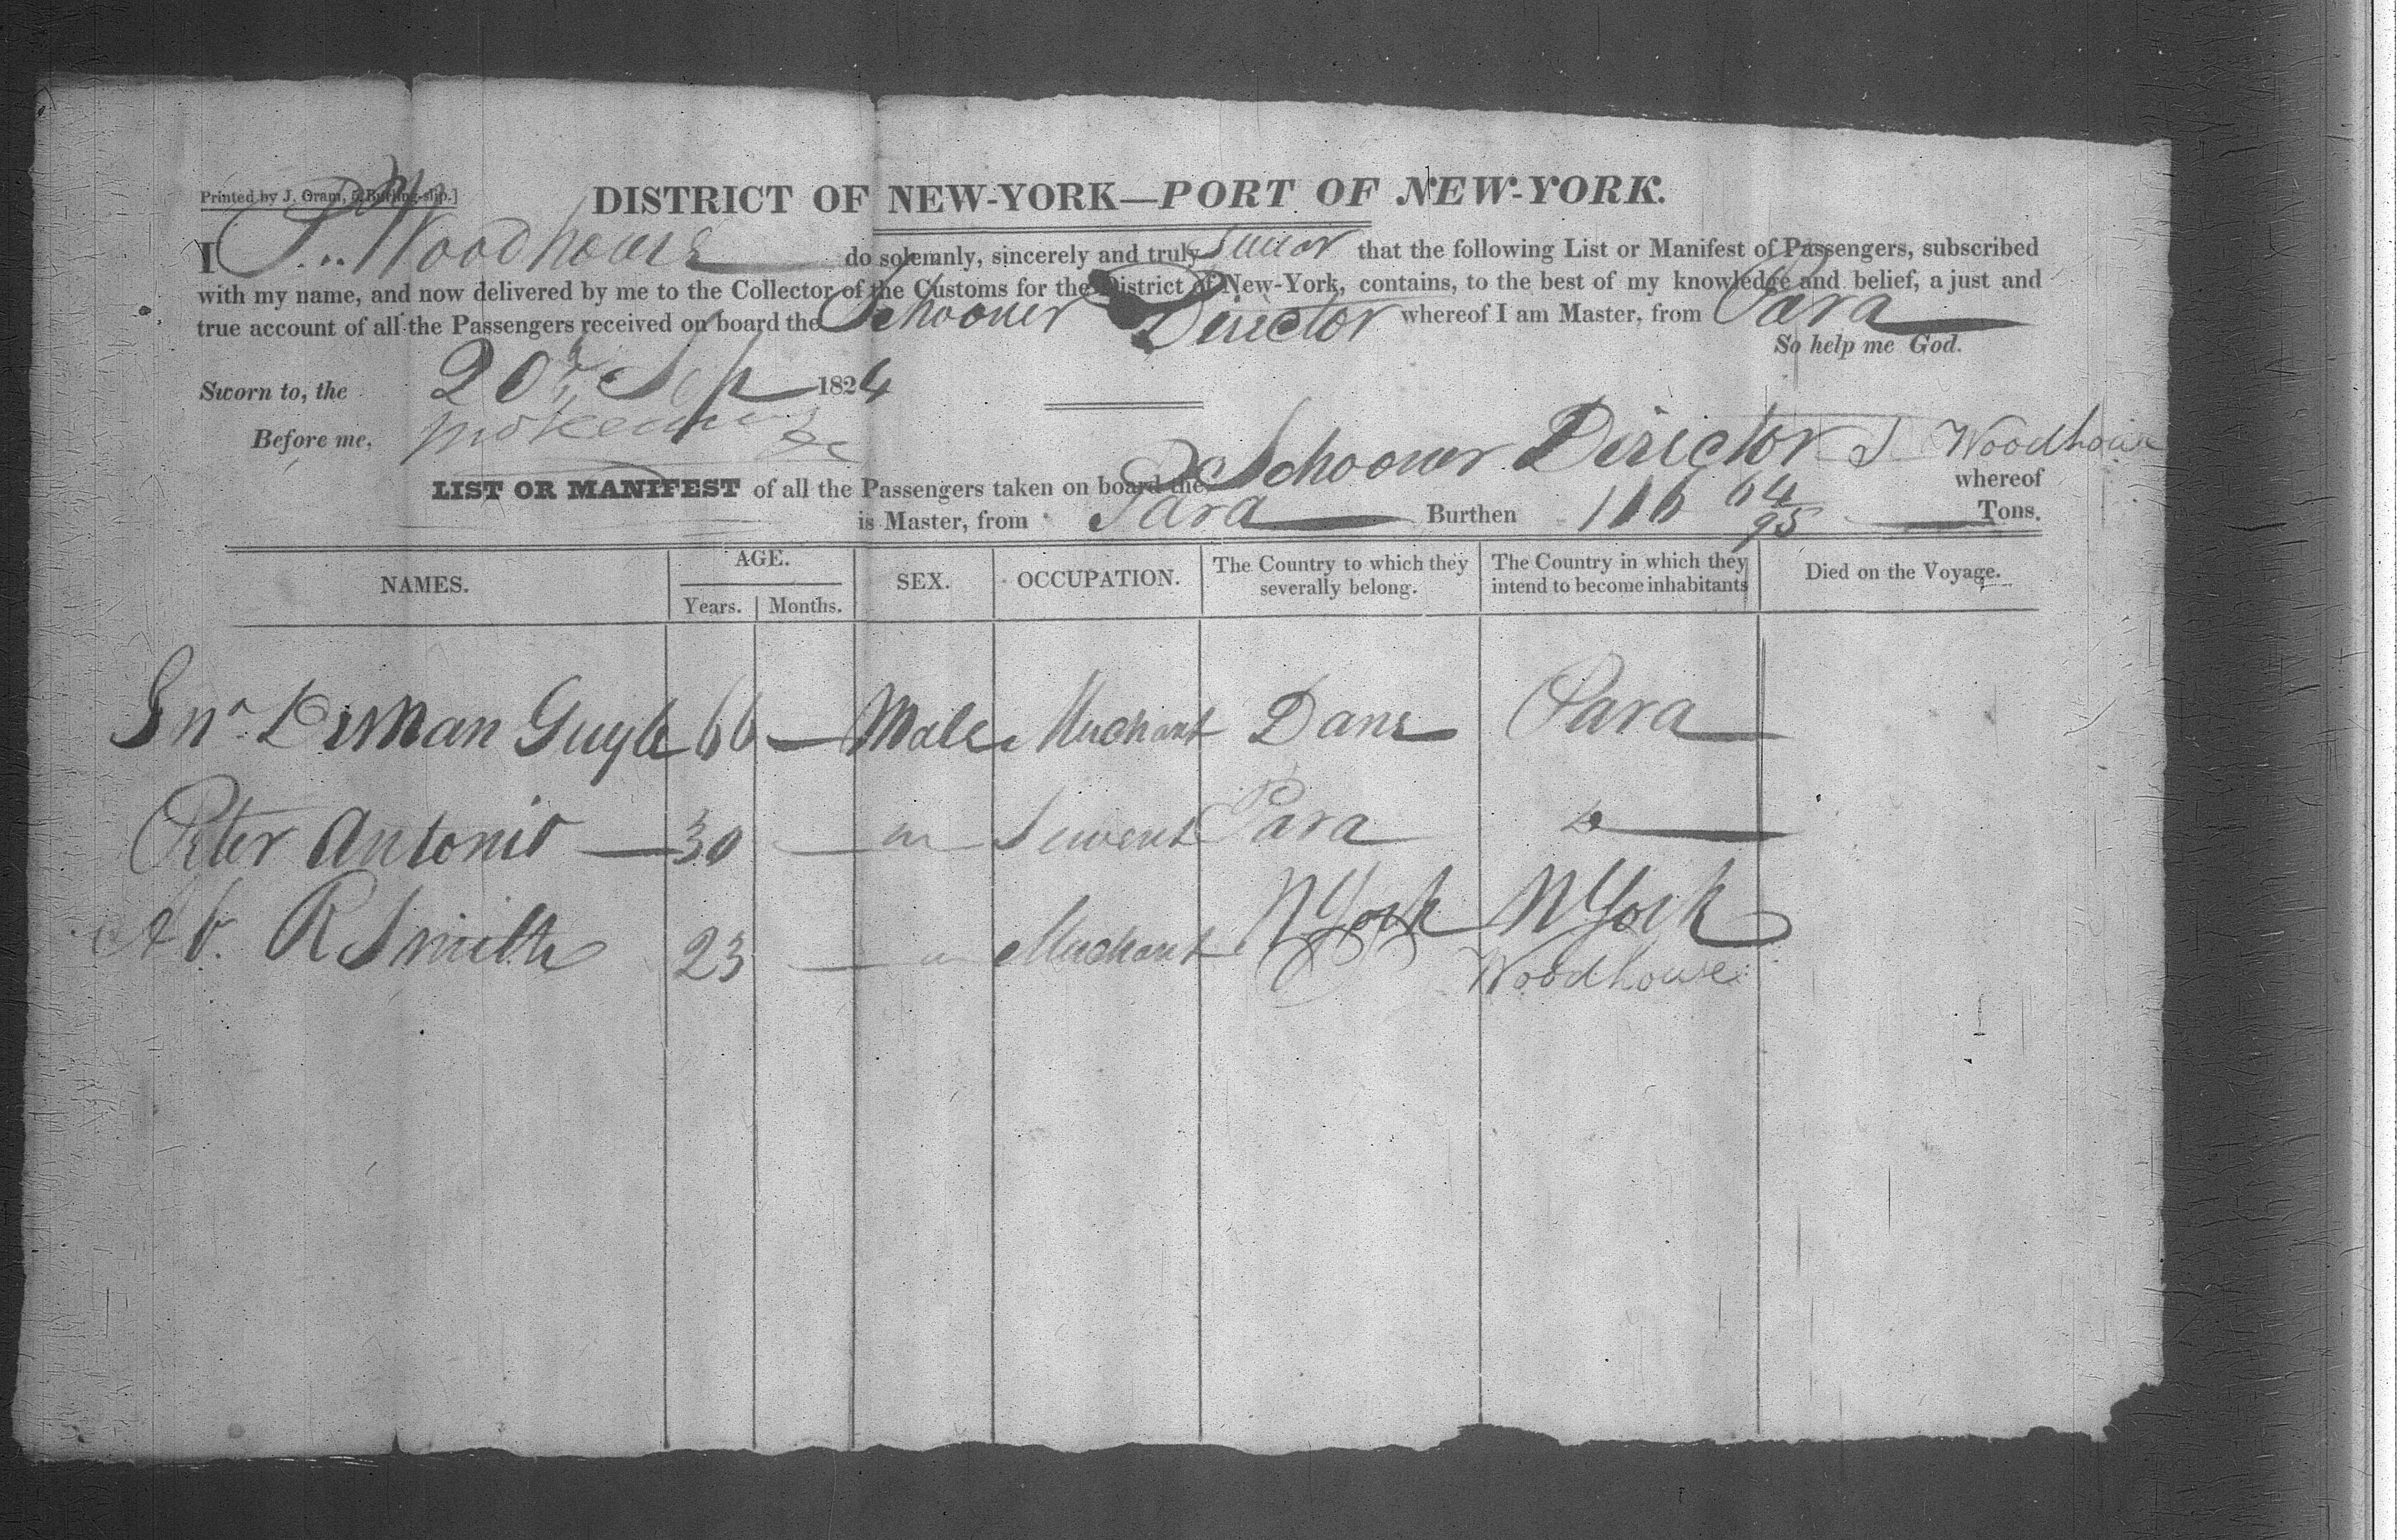 Printed by J. Gram, 5 Burling-slip.]
DISTRICT OF NEW-YORK—PORT OF NEW-YORK.
I Woodhouse do solemnly, sincerely and truly swear that the following List or Manifest of Passengers, subscribed
with my name, and now delivered by me to the Collector of the Customs for the District of New-York, contains, to the best of my knowledge and belief, a just and
true account of all the Passengers received on board the Schooner Director whereof I am Master, from Para
So help me God.
Sworn to, the 20th Sep 1824
Before me,
LIST OR MANIFEST of all the Passengers taken on board the Schooner Director J Woodhouse whereof
is Master, from Para Burthen 116 64/95 Tons.
NAMES. AGE. SEX. OCCUPATION. The Country to which they severally belong. The Country in which they intend to become inhabitants Died on the Voyage.
Years. Months.
Guyle 66 — Male Merchant Dane Para
Peter Antonio — 30 — m Servent Para Do
Ab. R Smith 23 — m Merchant N York N York
Woodhouse